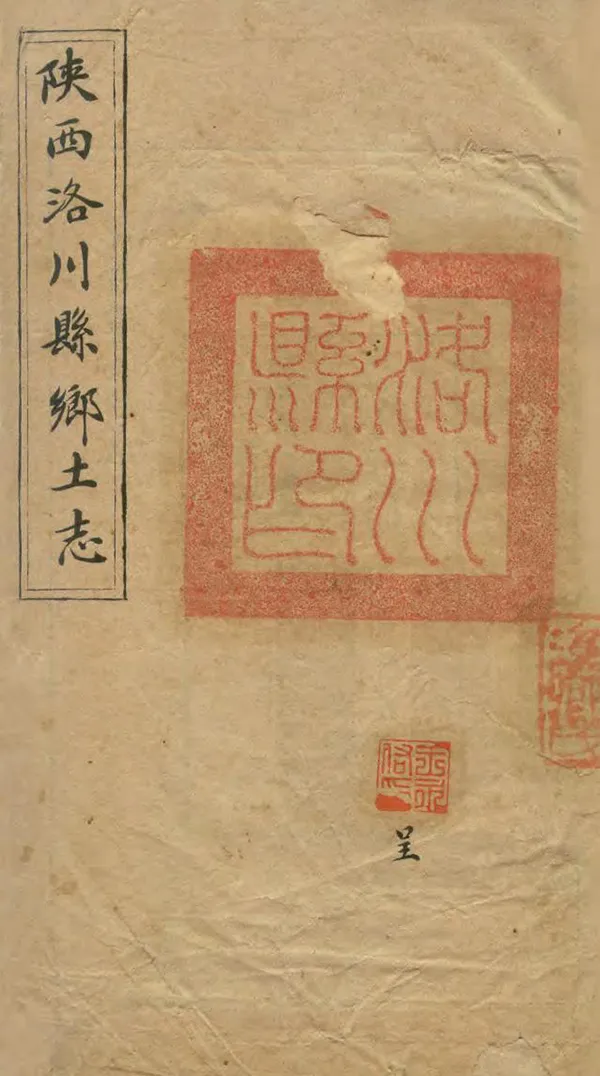 陝西洛川縣鄉土志
洛川
縣印
呈